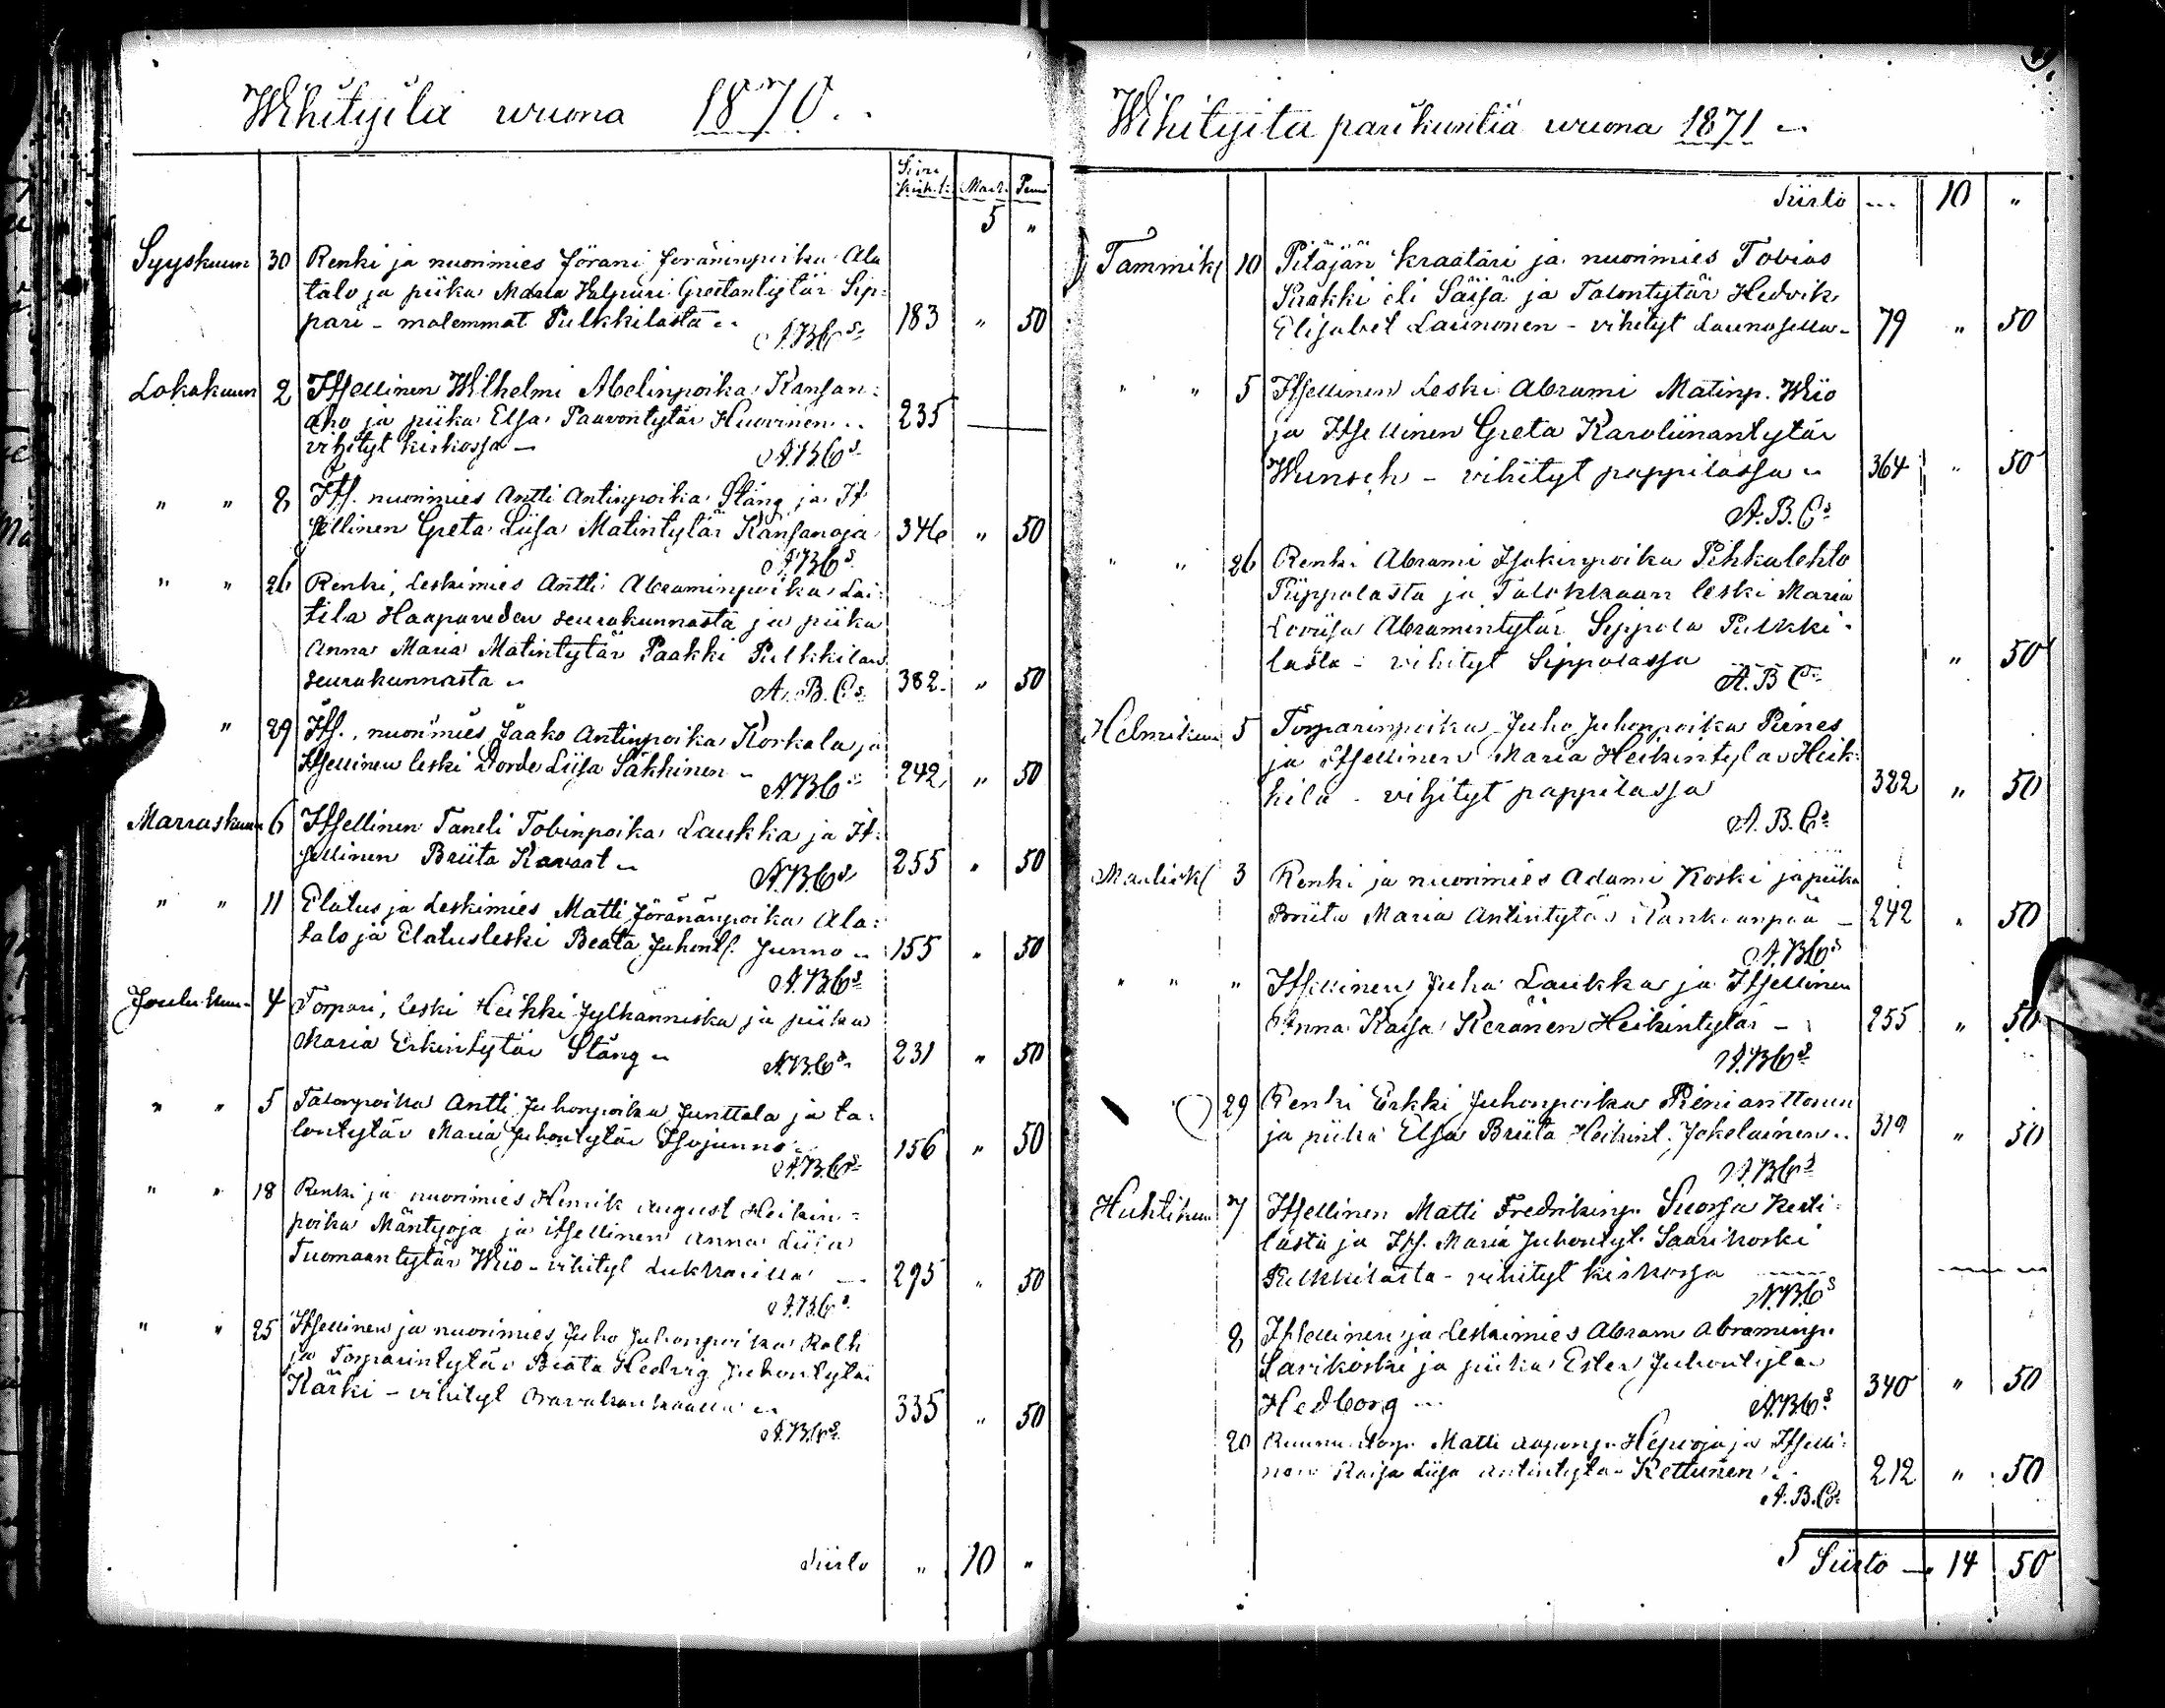 Wihityitä wuona 1870.
Sivu kirk.k. Mark. Penni
5 "
Syyskuun 30 Renki ja nuorimies Jörani Jöraninpoika Ala
talo ja piika Maria Valpuri Greetantytär Sip-
pari - molemmat Pulkkilasta 183 " 50
A.B.Cs.
Lokakuun 2 Itsellinen Wilhelmi Abelinpoika Kansan-
aho ja piika Elsa Paavontytär Huovinen 235 —
vihityt kirkossa - A.B.Cs.
" " 8 Its. nuorimies Antti Antinpoika Stång ja It-
sellinen Greta Liisa Matintytär Kansanoja 346 " 50
A.B.Cs.
" " 26 Renki, Leskimies Antti Abraminpoika Lai-
tila Haapaveden seurakunnasta ja piika
Anna Maria Matintytär Paakki Pulkkilan
seurakunnasta A.B.Cs. 382 " 50
" 29 Its., nuorimies Jaako Antinpoika Korkala ja
Itsellinen leski Dorde Liisa Säkkinen 242 " 50
A.B.Cs.
Marraskuun 6 Itsellinen Taneli Tobinpoika Laukka ja It-
sellinen Briita Karvaat A.B.Cs. 255 " 50
" " 11 Elatus ja Leskimies Matti Jöränänpoika Ala-
talo ja Elatusleski Beata Juhont. Junno 155 " 50
A.B.Cs.
Joulukuun 4 Torpari, leski Heikki Jylhänniska ja piika
Maria Erkintytär Stång A.B.Cs. 231 " 50
" " 5 Talonpoika Antti Juhonpoika Junttala ja ta-
lontytär Maria Juhontytär Isojunno 156 " 50
A.B.Cs.
" " 18 Renki ja nuorimies Henrik August Heikin-
poika Mäntyoja ja itsellinen Anna Liisa
Tuomaantytär Wiio - vihityt Lukkarilla 295 " 50
A.B.Cs.
" " 25 Itsellinen ja nuorimies Juho Juhonpoika
ja Torparintytär Beata Hedvig Juhontytär
Kärki - vihityt 335 " 50
A.B.Cs.
Siirto " 10 "
Wihityitä parikuntia wuona 1871
Siirto ... 10 "
Tammik. 10 Pitäjän kraatari ja nuorimies Tobias
eli Säisä ja Talontytär Hedvik
Elisabet Launonen - vihityt Launosella - 79 " 50
" " 5 Itsellinen Leski Abrami Matinp. Wiio
ja Itsellinen Greta Karoliinantytär
Wunsch - vihityt pappilassa 364 " 50
A.B.Cs.
" " 26 Renki Abrami Isakinpoika Pihkalehto
Piippolasta ja Talokkaan leski Maria
Loviisa Abramintytär Sippola Pulkki-
lasta - vihityt Sippolassa " 50
A.B.Cs.
Helmikuun 5 Torparinpoika Juho Juhonpoika Pines
ja itsellinen Maria Heikintytär Heik-
kilä - vihityt pappilassa 322 " 50
A.B.Cs.
Maalisk. 3 Renki ja nuorimies Adami Koski ja piika
Briita Maria Antintytär - 242 " 50
A.B.Cs.
" " " Itsellinen Juho Laukka ja Itsellinen
Anna Kaisa Keränen Heikintytär - 255 " 50
A.B.Cs.
" 29 Renki Erkki Juhonpoika Pienianttonen
ja piika Elsa Briita Heikint. Jokelainen 319 " 50
A.B.Cs.
Huhtikuun 7 Itsellinen Matti Fredrikinp. Suorsa Kesti-
lästä ja Its. Maria Juhontyt. Saarikoski
Pulkkilasta - vihityt kirkossa
A.B.Cs.
8 Itsellinen ja Leskimies Abram Abraminp.
Sarikoski ja piika Ester Juhontytär
Hedborg A.B.Cs. 340 " 50
20 Matti Hepooja ja Itselli-
nen Kaisa Liisa Antintytär Kettunen 212 " 50
A.B.Cs.
Siirto — 14 50